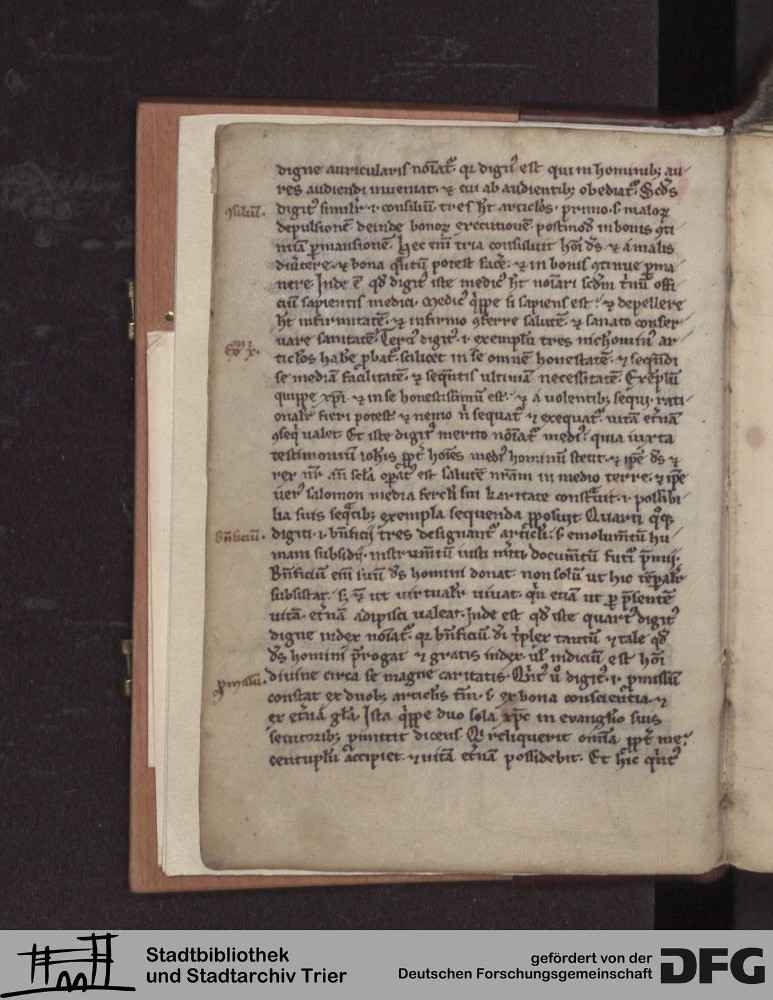 digne auricularis noīat᷑. qr dign᷒ est qui in hominib; au
res audiendi inueniat. ⁊ cui ab audientib; obediat᷑. Scd̄s
9siliū.
digit᷒ simlr̄ .i. consiliū tres ht̄ articlos. primo .s. maloꝝ
depulsionē. deinde bonoꝝ executionē. postmod̄ in bonis 9ti
nuā ꝑmansionē. Hec em̄ tria consulunt hōi d̄s. ⁊ a malis
diūtere. ⁊ bona q̄ntū potest facē. ⁊ in bonis 9tinue ꝑma
nere. Inde ē qd̄ digit᷒ iste medic᷒ ht̄ noīari scdm̄
ciū sapientis medici. Medic᷒ q̄ppe si sapiens est. ⁊ depellere
ht̄ infirmitatē. ⁊ infirmo 9ferre salutē. ⁊ sanato conser
uare sanitatē. Terci᷒ digit᷒ .i. exemplū tres nichomin᷒ ar
ticlos habe ꝓbat᷑. scilicet in se omnē honestatē. ⁊ seqn̄di
se mediā facilitatē. ⁊ seqn̄tis ultimā necessitatē. Exēplū
quippe xp̄i ⁊ in se honestissimū est. ⁊ a uolentib; sequi. rati
onalr̄ fieri potest. ⁊ nemo n̄ sequat᷑ ⁊ exequat᷑. uitā et̄nā
9seq̄ ualet. Et iste digit᷒ merito noīat᷑ medi᷒. quia iuxta
testimoniū ioh̄is ꝓpt̄ hoīes medi᷒ hominū stetit. ⁊ ip̄e d̄s ⁊
rex nr̄ an̄ scl̄a opat᷑ est salutē nr̄am in medio terre. ⁊ ip̄e
uer᷒ salomon media fercli sui karitate constrauit .i. possibi
lia suis seq̄tib; exempla sequenda ꝓposuit. Quarti q°q;
Bn̄ficiū.
digiti .i. bn̄ficii tres designant᷑ articli. s. emolum̄tū hu
mani subsidii. instrum̄tū iusti docum̄tū futi p̄mii.
Bn̄ficiū em̄ suū d̄s homini donat. non solū ut hic tēꝑalr̄
subsistat. s; ⁊ ut uirtualr̄ uiuat. q̄n etiā ut ꝑ p̄sentē
uitā. et̄nā adipisci ualeat. Inde est qd̄ iste quart᷒ digit᷒
digne index noīat᷑. qr bn̄ficiū d̄i t̄plex tantū ⁊ tale qd̄
d̄s homini p̄rogat ⁊ gratis index ul̄ indiciū est hōi
ꝓmissū.
diuine circa se magne caritatis. Q̄nt᷒ ū digit᷒ .i. ꝓmissū
constat ex duob; articlis tm̄. s. ex bona conscientia ⁊
ex et̄nā gl̄a. Ista q̄ppe duo sola xp̄c in evanglio suis
secutorib; ꝓmittit dicens. Q̇ reliquerit om̄ia ꝓpt̄ me.
centuplū accipiet. ⁊ uitā et̄nā possidebit. Et hic q̄nt᷒
Stadtbibliothek
und Stadtarchiv Trier
gefördert von der
Deutschen Forschungsgemeinschaft
DFG